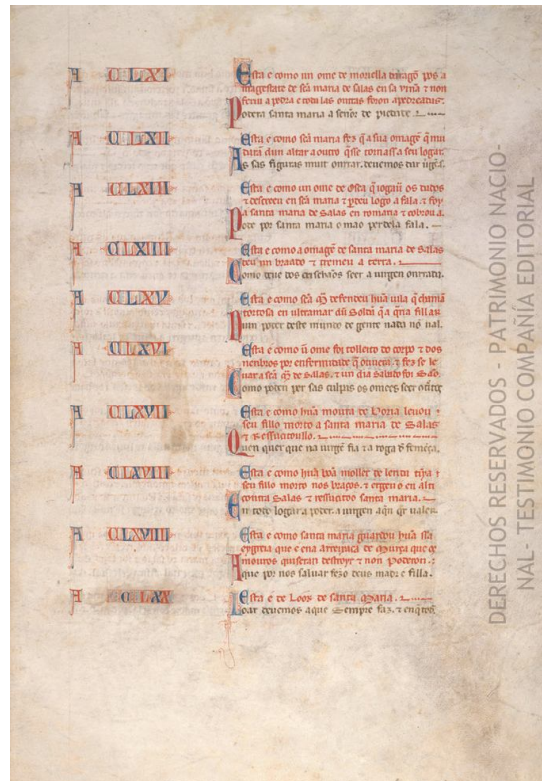 A CLXI
Esta e como un ome de moriella daragõ pos a
magestade de sc̃a maria de salas en sa vinna z non
feriu a pedra e todalas outras foron apedreadas.
Podera santa maria a señor de piedade.
A CLXII
Esta e como sc̃a maria fez q̃ a sua omagẽ q̃ mu
daran dun altar a outro q̃sse tornassa seu logar.
As sas figuras muit onrrar. deuemos da uirgẽ.
A CLXIII
Esta e como un ome de Osca q̃ iogaua os dados
z descreeu en sc̃a maria z perdeu logo a fala z foy
a santa maria de Salas en romaria z cobrou a.
Pode por santa maria o mao perdela fala.
A CLXIIII
Esta e como a omagẽ de santa maria de Salas
deu un braado z tremeu a terra.
Como deus dos ensinados seer a uirgen onrrada.
A CLXV
Esta e como sc̃a Mª defendeu hũa uila q̃ chamã
tortosa en ultramar dũ Soldã q̃a q̃ria fillar.
Dun poder deste mundo de gente nada nõ ual.
A CLXVI
Esta e como ũ ome foi tolleito do corpo z dos
nenbros por enfermidade q̃ ouuera. z fez se le
uar a sc̃a Mª de Salas. z un dia Sabado foi são.
Como poden per sas culpas os omees seer
A CLXVII
Esta e como hũa moura de Boria leuou
seu fillo morto a santa maria de Salas
z ressucitoullo.
Quen quer que na uirgẽ fia z a roga
A CLXVIII
Esta e como hũa bõa moller de lerida tijna
seu fillo morto nos braços. z ergeu o en alto
contra Salas z ressucitoo santa maria.
En todo logar a poder. a uirgen
A CLXVIIII
Esta e como santa maria guardou hũa ssa
eygreia que e ena Arreixaca de Murça que os
mouros quiseran destroyr z non poderon.
A que por nos saluar fezo deus madr e filla.
A CLXX
Esta e de Loor de santa Maria.
Loar deuemos a que Sempre faz. z en
DERECHOS RESERVADOS - PATRIMONIO NACIO-
NAL- TESTIMONIO COMPAÑÍA EDITORIAL